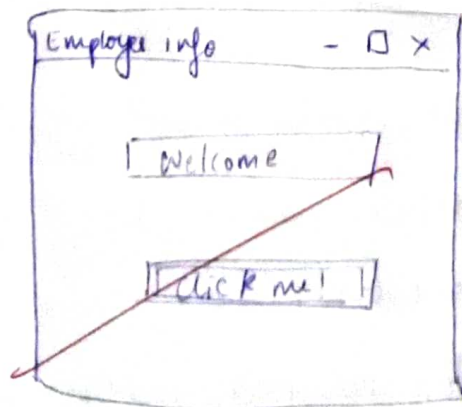 Employee info - □ ×
Welcome
Click me!